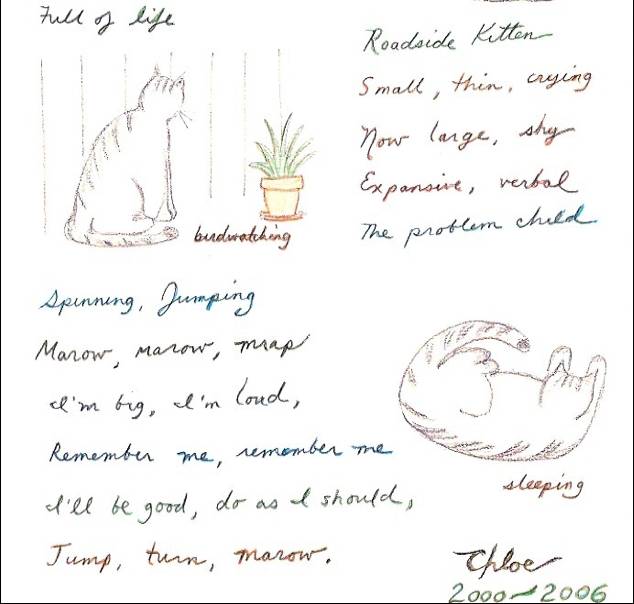 Full of life
birdwatching
Roadside Kitten
Small, thin, crying
Now large, shy
Expansive, verbal
The problem child
Spinning, Jumping
Marow, marow, mrap
I'm big, I'm loud,
Remember me, remember me
I'll be good, do as I should,
Jump, turn, marow.
sleeping
Chloe
2000-2006